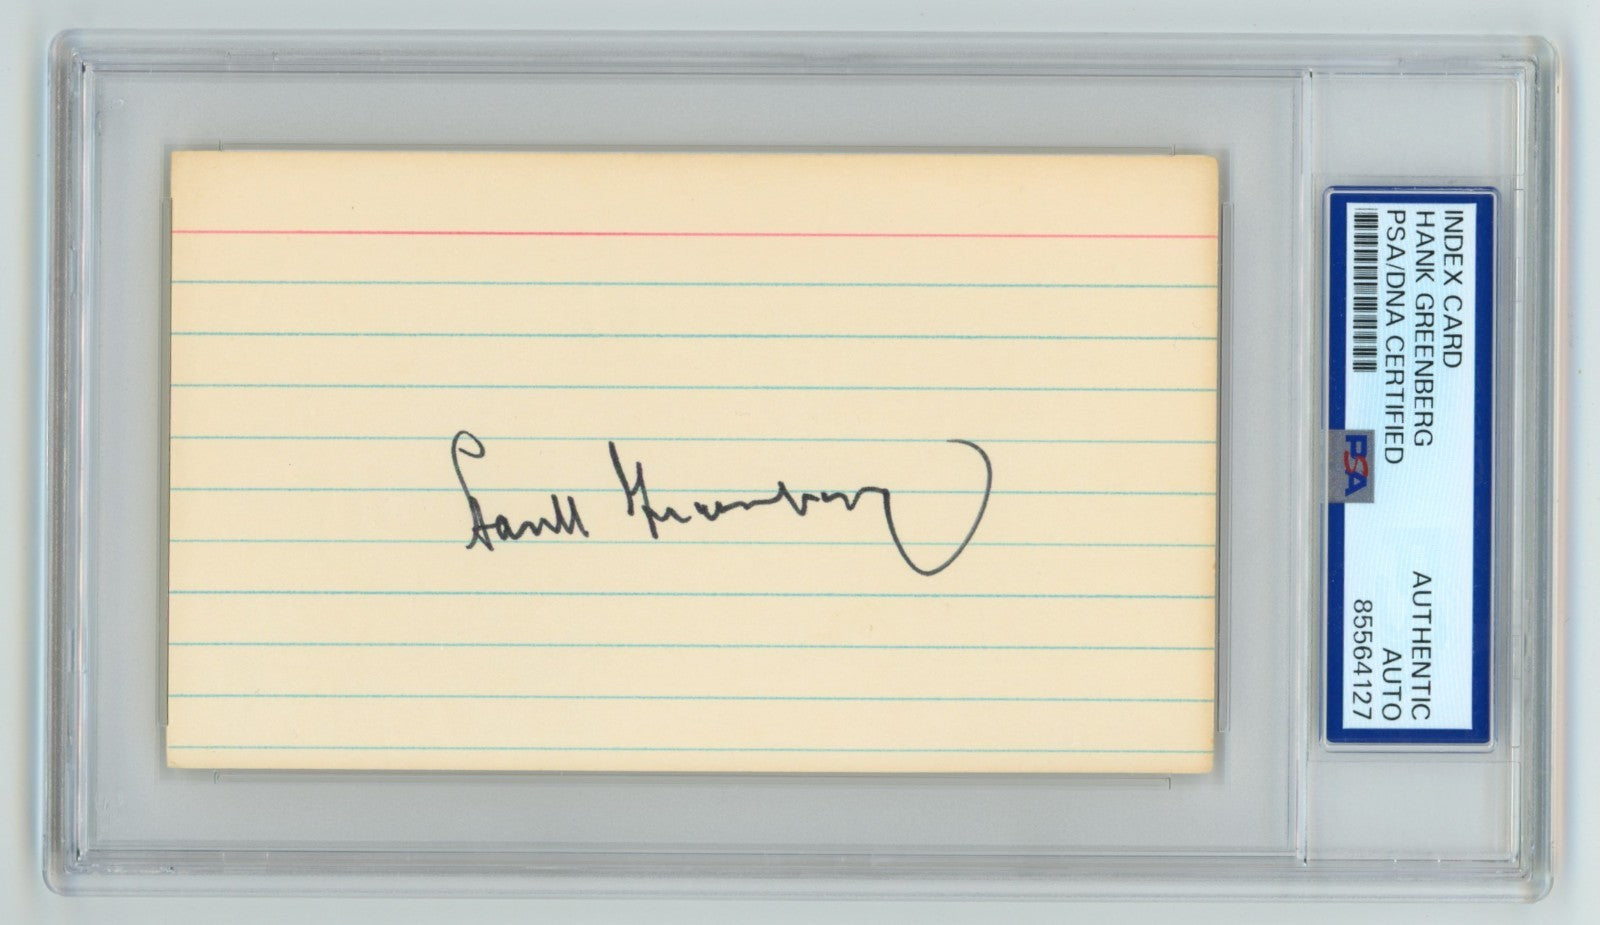 Hank Greenberg
INDEX CARD
HANK GREENBERG
PSA/DNA CERTIFIED
PSA
AUTHENTIC
AUTO
85564127